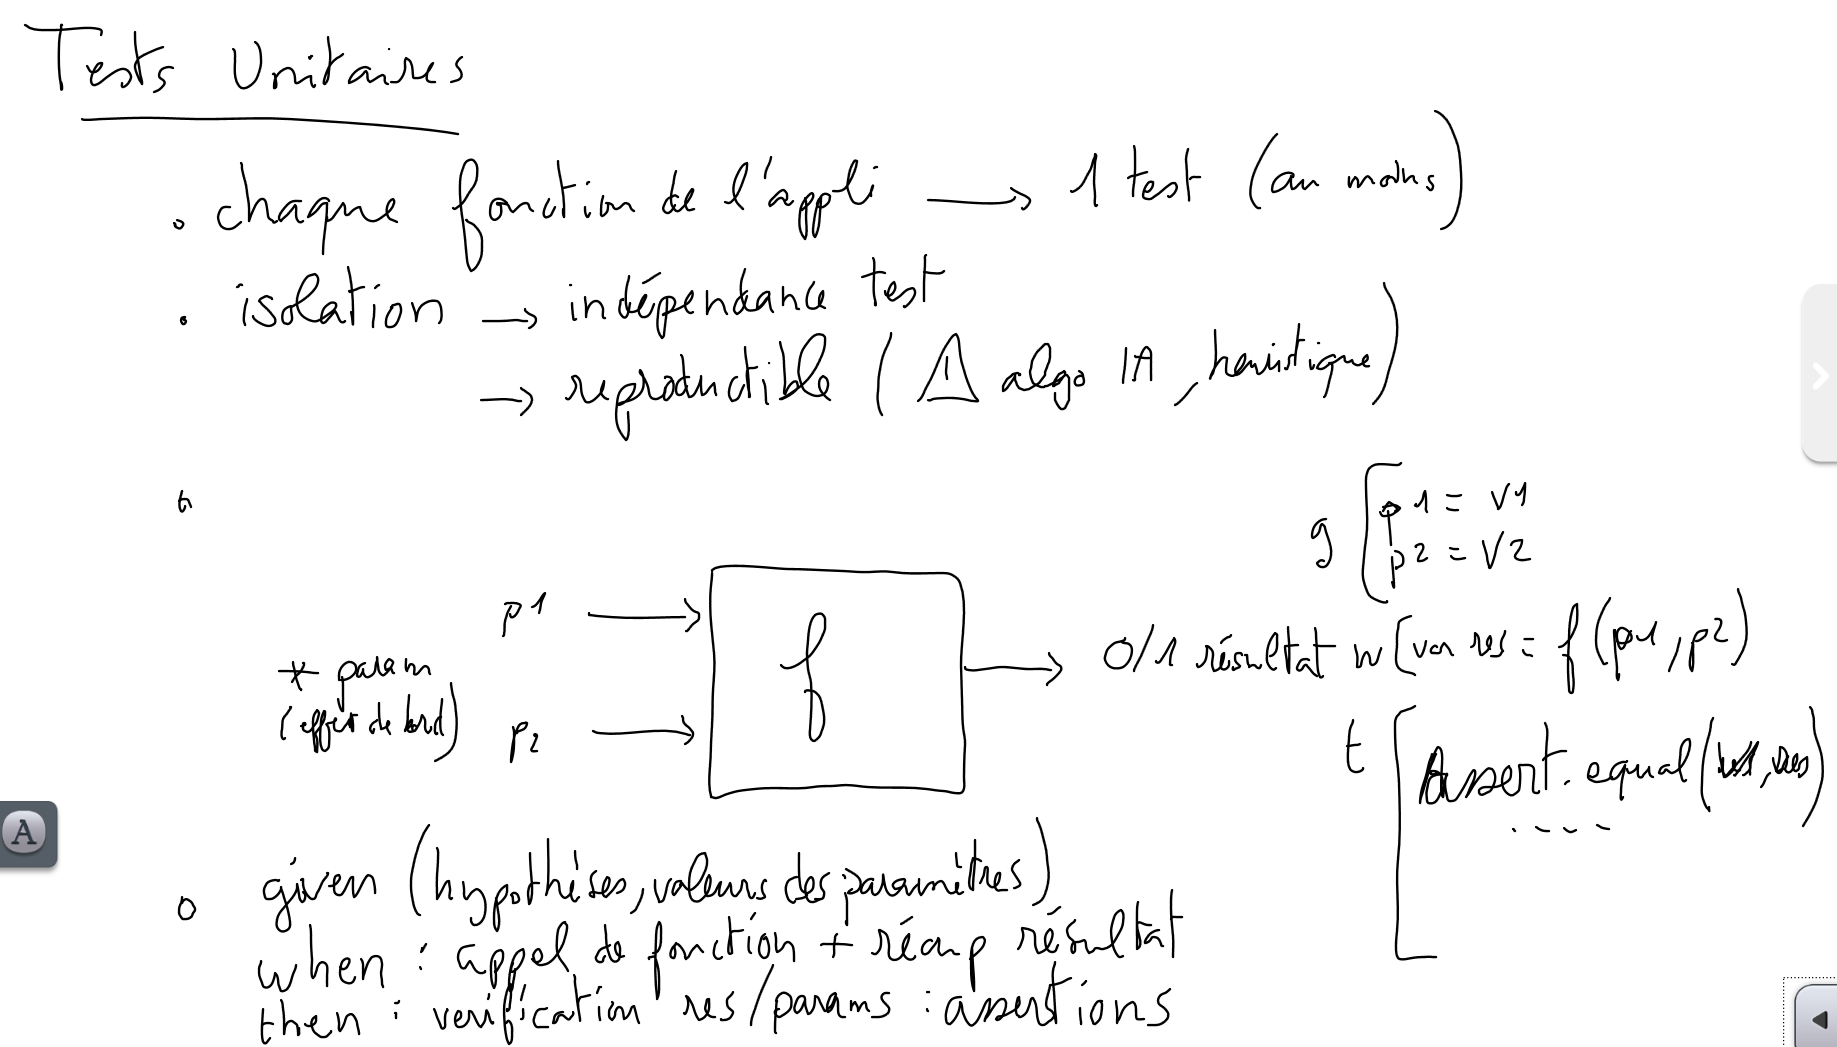 Tests Unitaires
. chaque fonction de l'appli → 1 test (au moins)
. isolation → indépendance test
→ reproductible (⚠ algo IA, heuristique)
g [ p1 = V1
p2 = V2
p1 →
f
→ 0/1 résultat
w [ var res = f(p1, p2)
* param
(effet de bord)
p2 →
t [ Assert.equal( , res)
. - - -
given (hypothèses, valeurs des paramètres)
when : appel de fonction + récup résultat
then : verification res/params : assertions
A